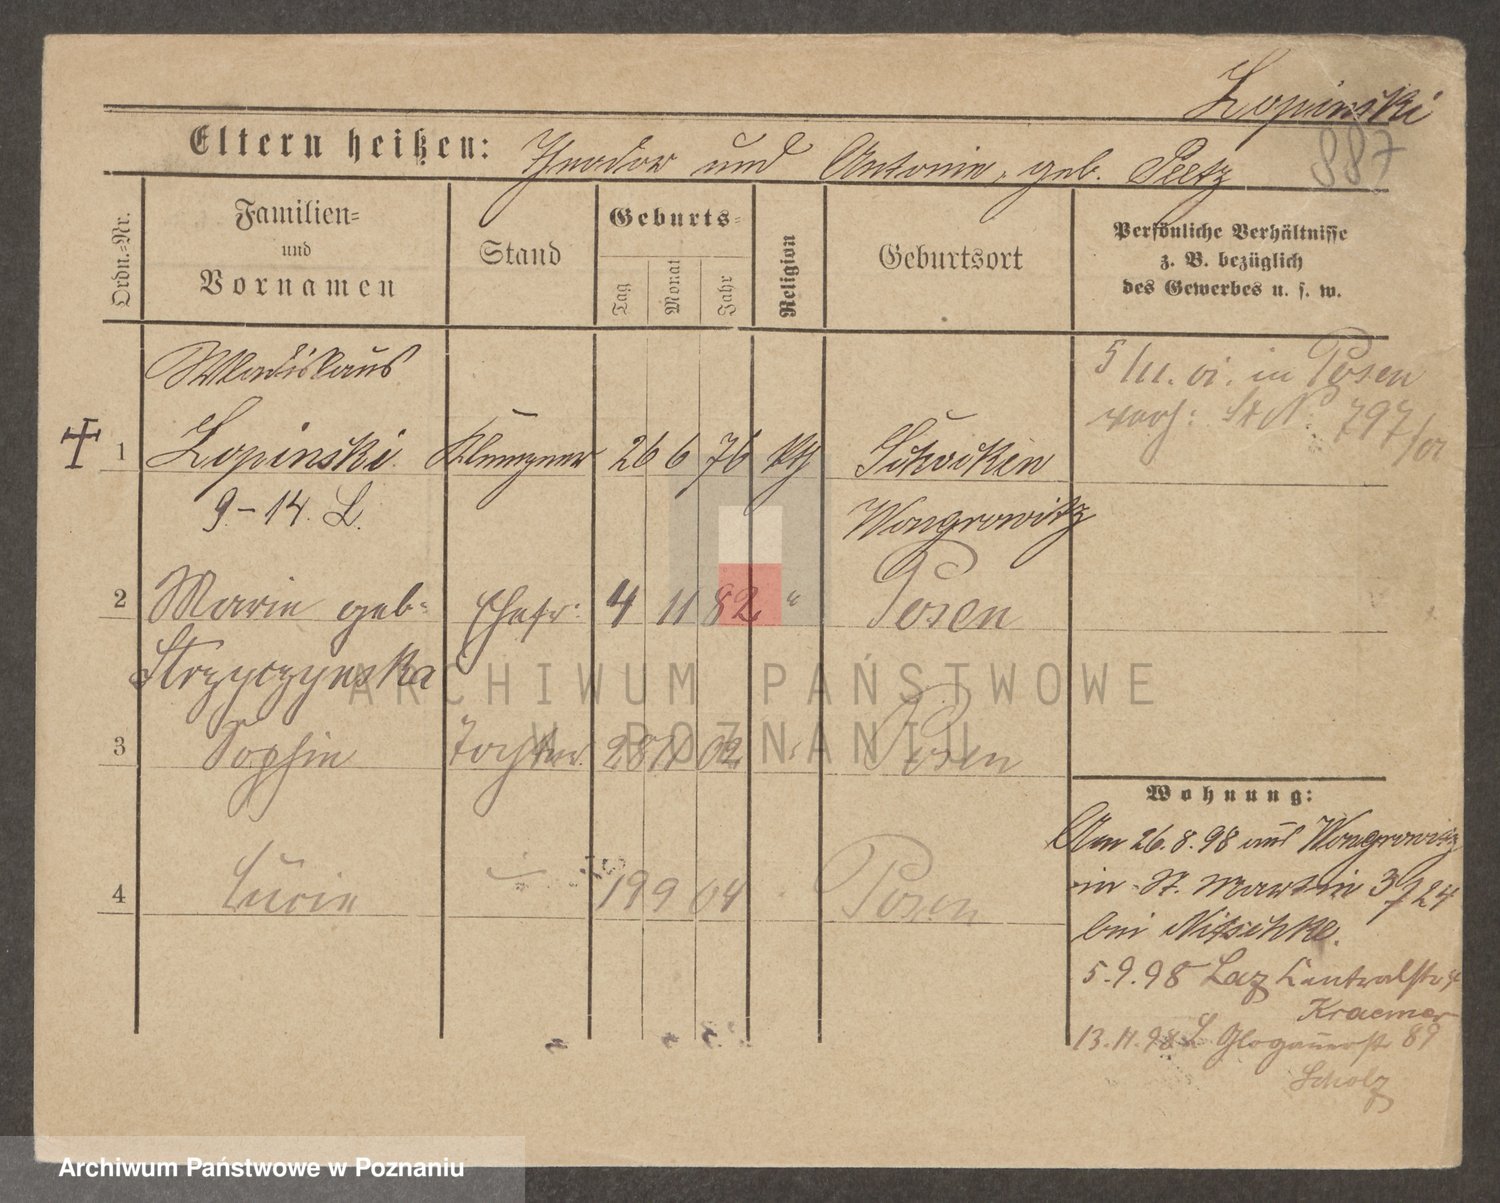 Lopinski
887
Eltern heißen: Theodor und Antonie, geb. Peetz
Ordn.=Nr.
Familien=
und
Vornamen
Stand
Geburts=
Tag
Monat
Jahr
Religion
Geburtsort
Persönliche Verhältnisse
z. B. bezüglich
des Gewerbes u. s. w.
Wladislaus
5/11. 01. in Posen
verh: St N. 797/01
1 Lopinski Klempner 26 6 76 kth Schocken
9.-14. L. Wongrowitz
2 Marie geb. Ehefr. 4 11 82 " Posen
Strzyczynska
3 Sophie Tochter 28 11 02 Posen
4 Lucie 19 9 04 Posen
Wohnung:
Am 26.8.98 aus Wongrowitz
in St. Martin 37 24
bei Nitschke.
5.9.98 Laz Centralstr 4
Kraemer
13.11.98 L Glogauerstr 89
Scholz
ARCHIWUM PAŃSTWOWE
W POZNANIU
Archiwum Państwowe w Poznaniu